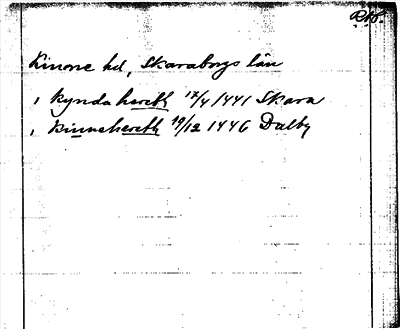 RAp.
Kinne hd, Skaraborgs län
, kynda hereth 17/4 1441 Skara
, kinnehereth 19/12 1446 Dalby